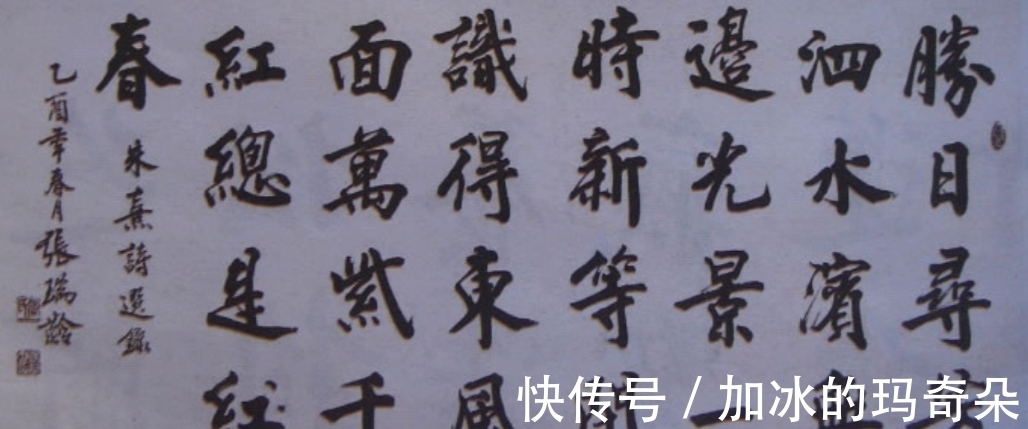 勝日尋
泗水濱無
邊光景一
時新等
識得東風
面萬紫千
紅總是紅
春
朱熹詩選錄
乙酉年春月張瑞齡
快传号 / 加冰的玛奇朵